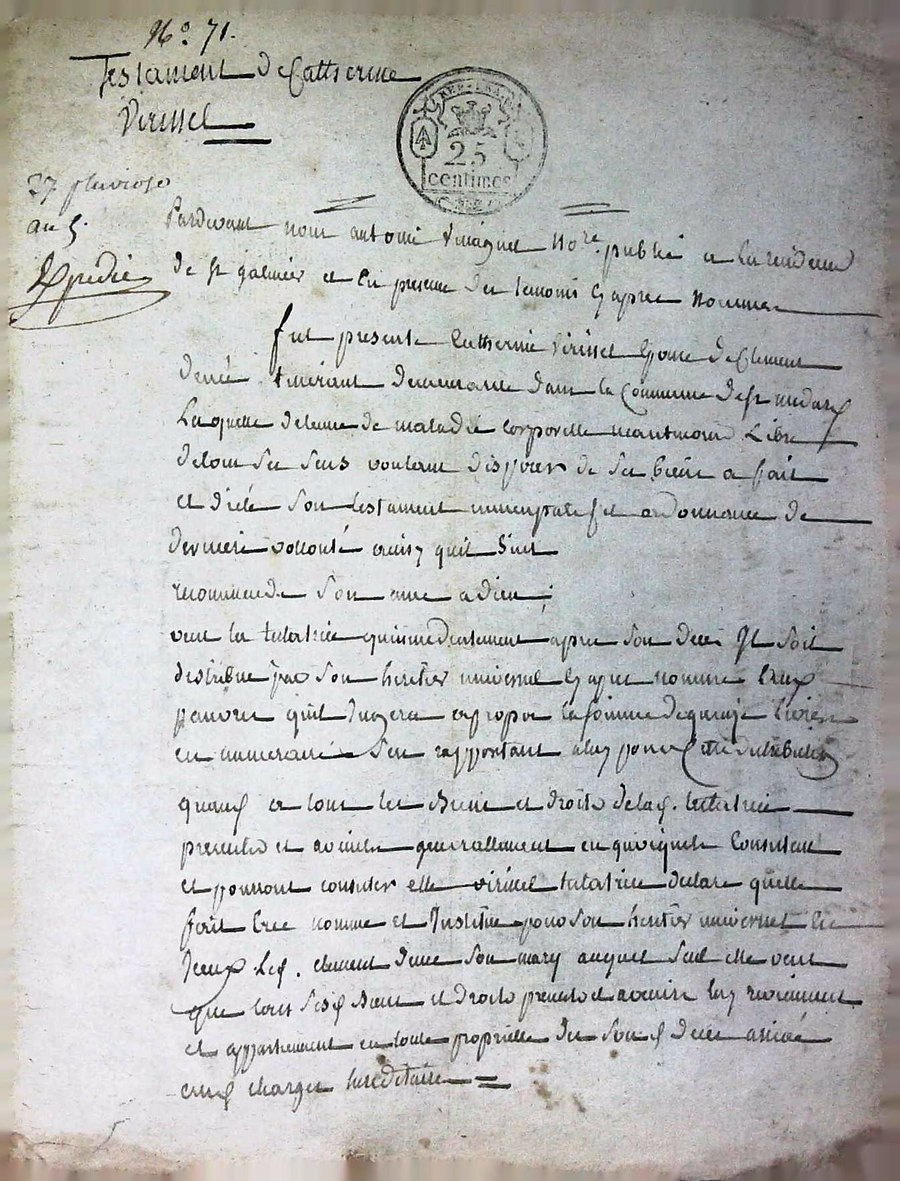 No. 71.
Testament de Catherine
Virissel
REP. FRA.
25
centimes
27 pluviose
an 5.
Expedié
Pardevant nous antoine nore. public a la residence
de st galmier et En presence des temoins Cy apres Nommes
fut presente Catherine Virissel Epouse de Clement
demeurante dans la Commune de st medard
Laquelle detenue de maladie corporelle neantmoins Libre
de tous ses sens voulant disposer de ses biens a fait
et dicté son testament nuncupatif et ordonnance de
derniere volonté ainsy quil suit
recommande son ame a dieu;
veut la testatrice quimmediatement apres son deces Il soit
distribué par son heritier universel Cy apres nommé aux
pauvres quil Jugera apropos la somme de quinze livres
en numeraire sen rapportant a luy pour cette distribution
quand a tous les Biens et droits de lad. testatrice
presents et avenir generallement en quoy quils Consistent
et pourront consister elle virissel testatrice declare quelle
fait Cree nomme et Institue pour son heritier universel
Led. clement son mary auquel seul elle veut
que tous sesd Biens et droits presents et avenir luy reviennent
et appartiennent en toute proprieté des son d deces arrivé
auxd charges hereditaires